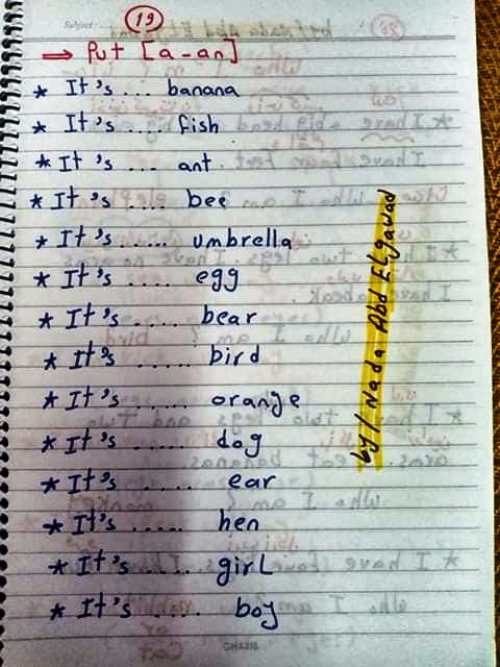 Subject:
19
⇒ Put [a-an]
* It's ... banana
* It's .... fish
* It's .... ant
* It's .... bee
* It's ..... umbrella
* It's .... egg
* It's ..... bear
* It's ..... bird
* It's ..... orange
* It's ..... dog
* It's ..... ear
* It's ..... hen
* It's ...... girl
* It's ..... boy
by/Nada Abd Elgawad